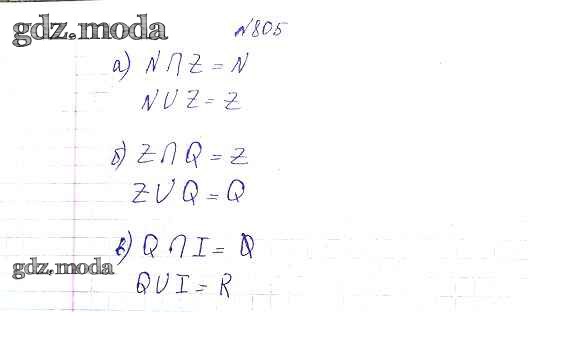 gdz.moda
№805
а) N∩Z = N
N∪Z = Z
б) Z∩Q = Z
Z∪Q = Q
в) Q∩I =
gdz.moda
Q∪I = R